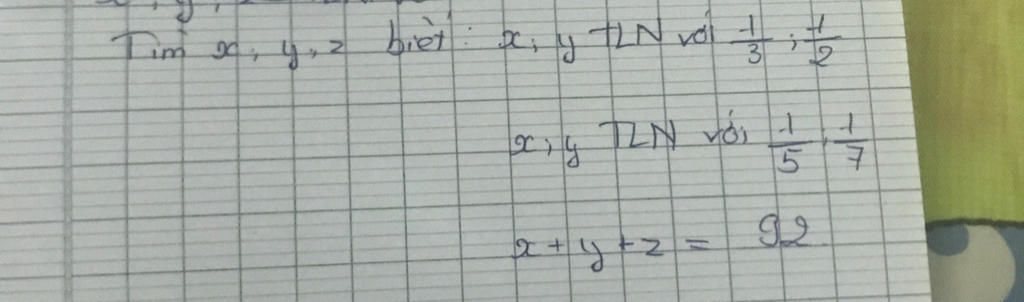 Tìm x, y, z biết: x, y TLN với 1/3 ; 1/2
x, y TLN với 1/5 , 1/7
x + y + z = 92